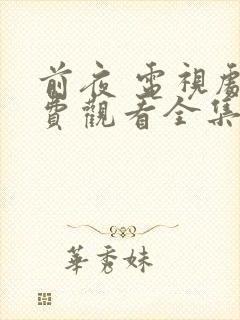 前夜 電視劇
費觀看全集
華秀妹